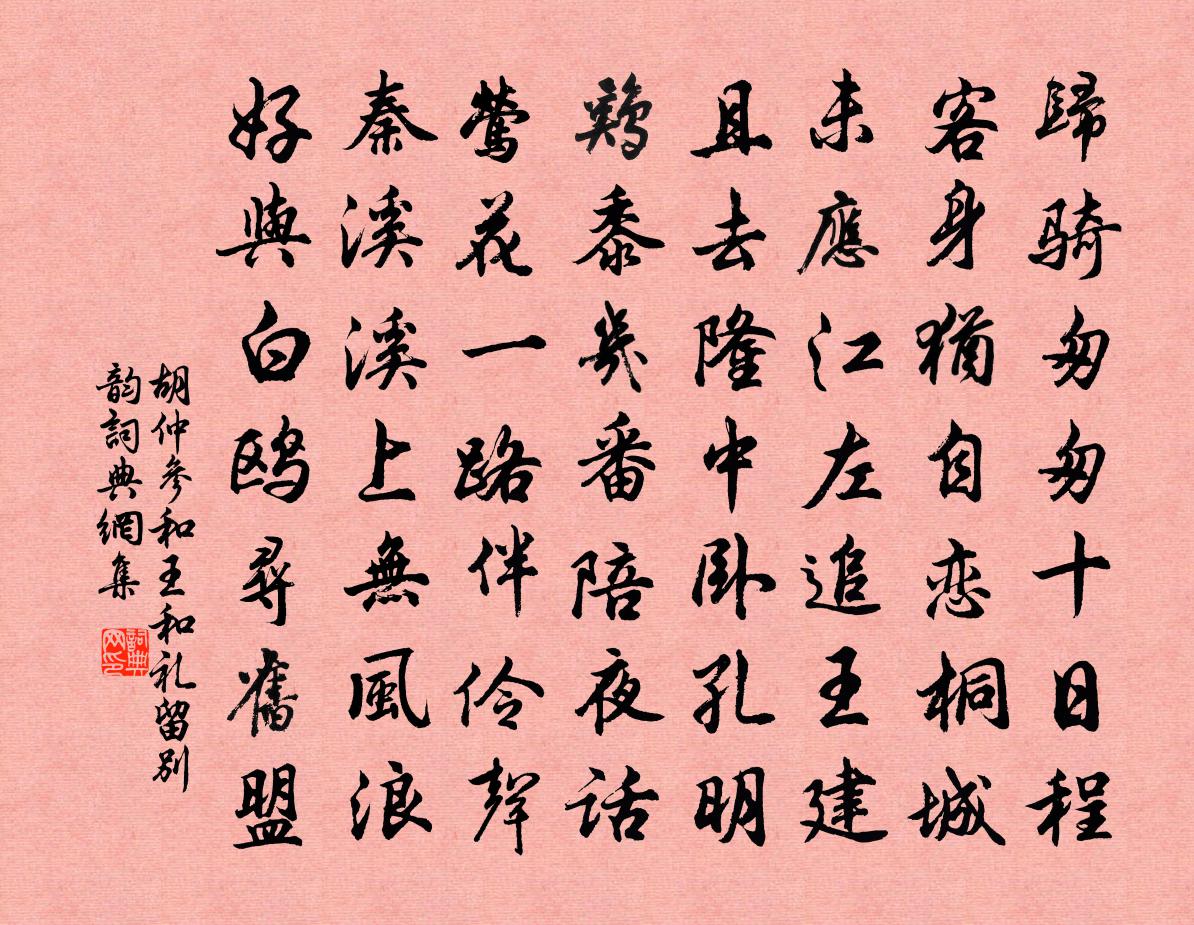 歸騎匆匆十日程
客身猶自恋桐城
未應江左追王建
且去隆中卧孔明
鷄黍幾番陪夜話
鶯花一路伴伶聲
秦溪溪上無風浪
好與白鷗尋舊盟
胡仲參和王和礼留别
韵詞典網集
詞典
网印